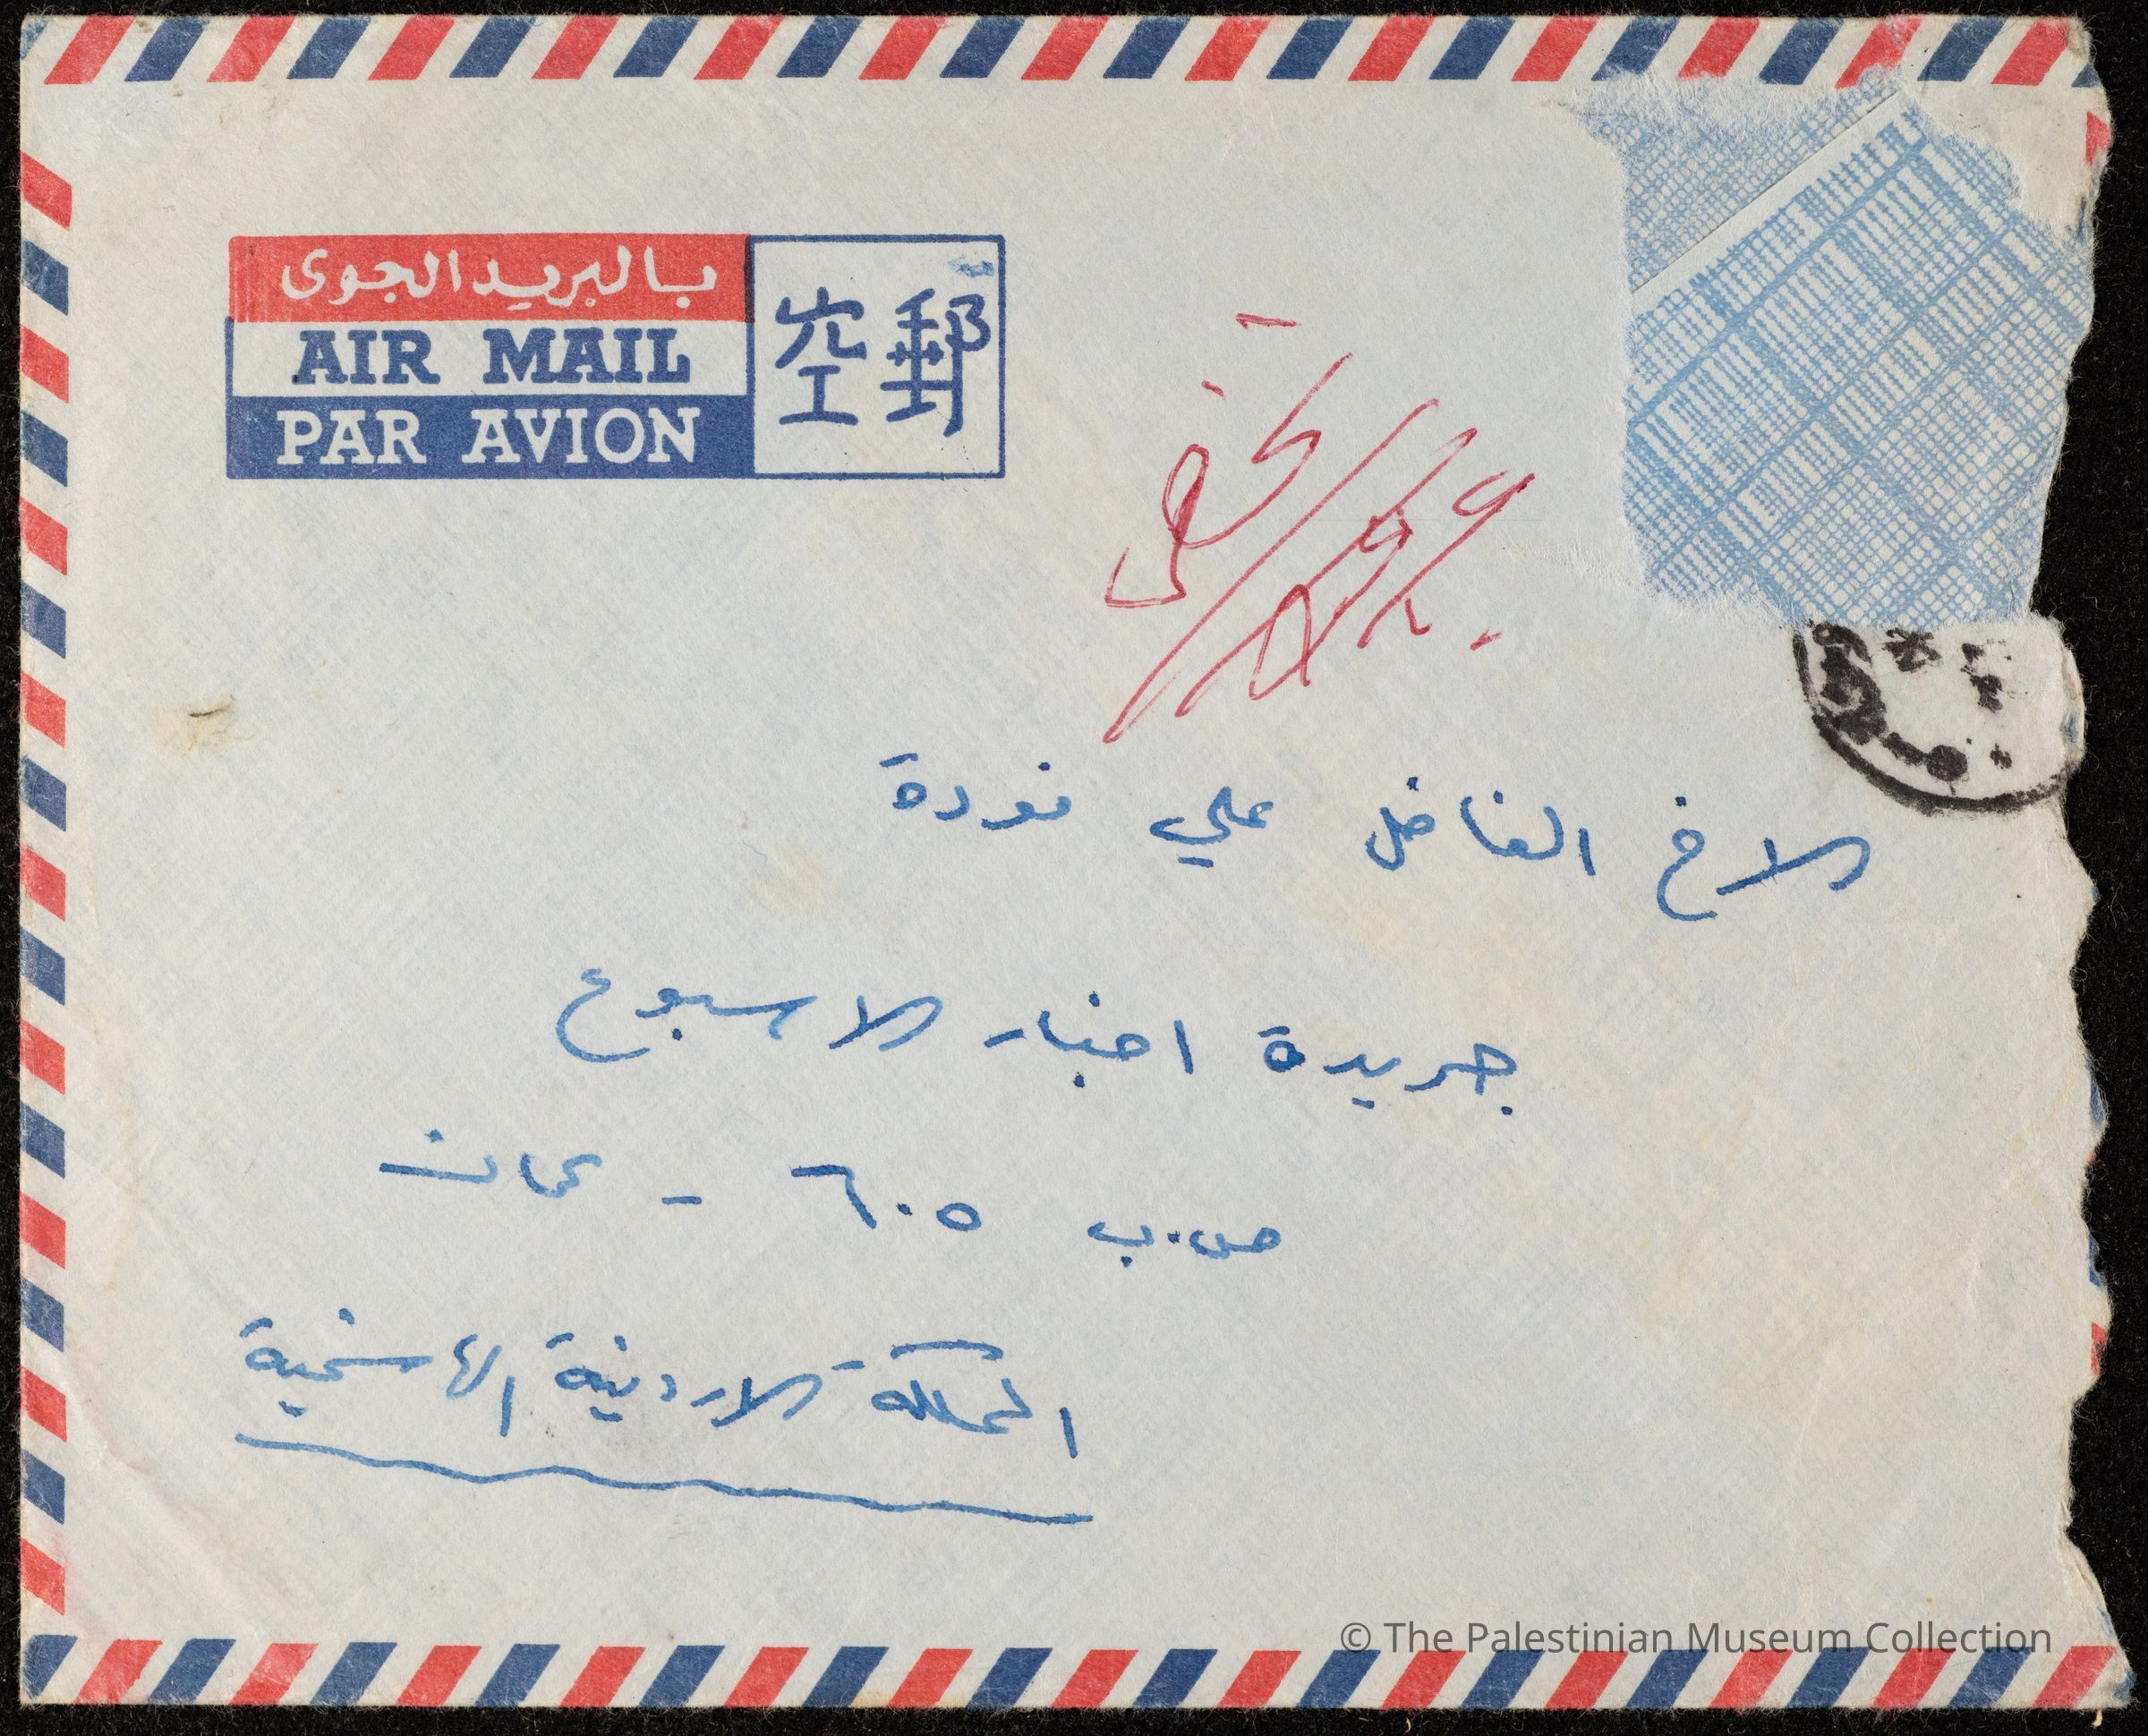 بالبريد الجوى
AIR MAIL
PAR AVION
郵空
الاخ الفاضل علي فودة
جريدة اخبار الاسبوع
ص.ب ٦٠٥ - عمان
المملكة الاردنية الهاشمية
© The Palestinian Museum Collection